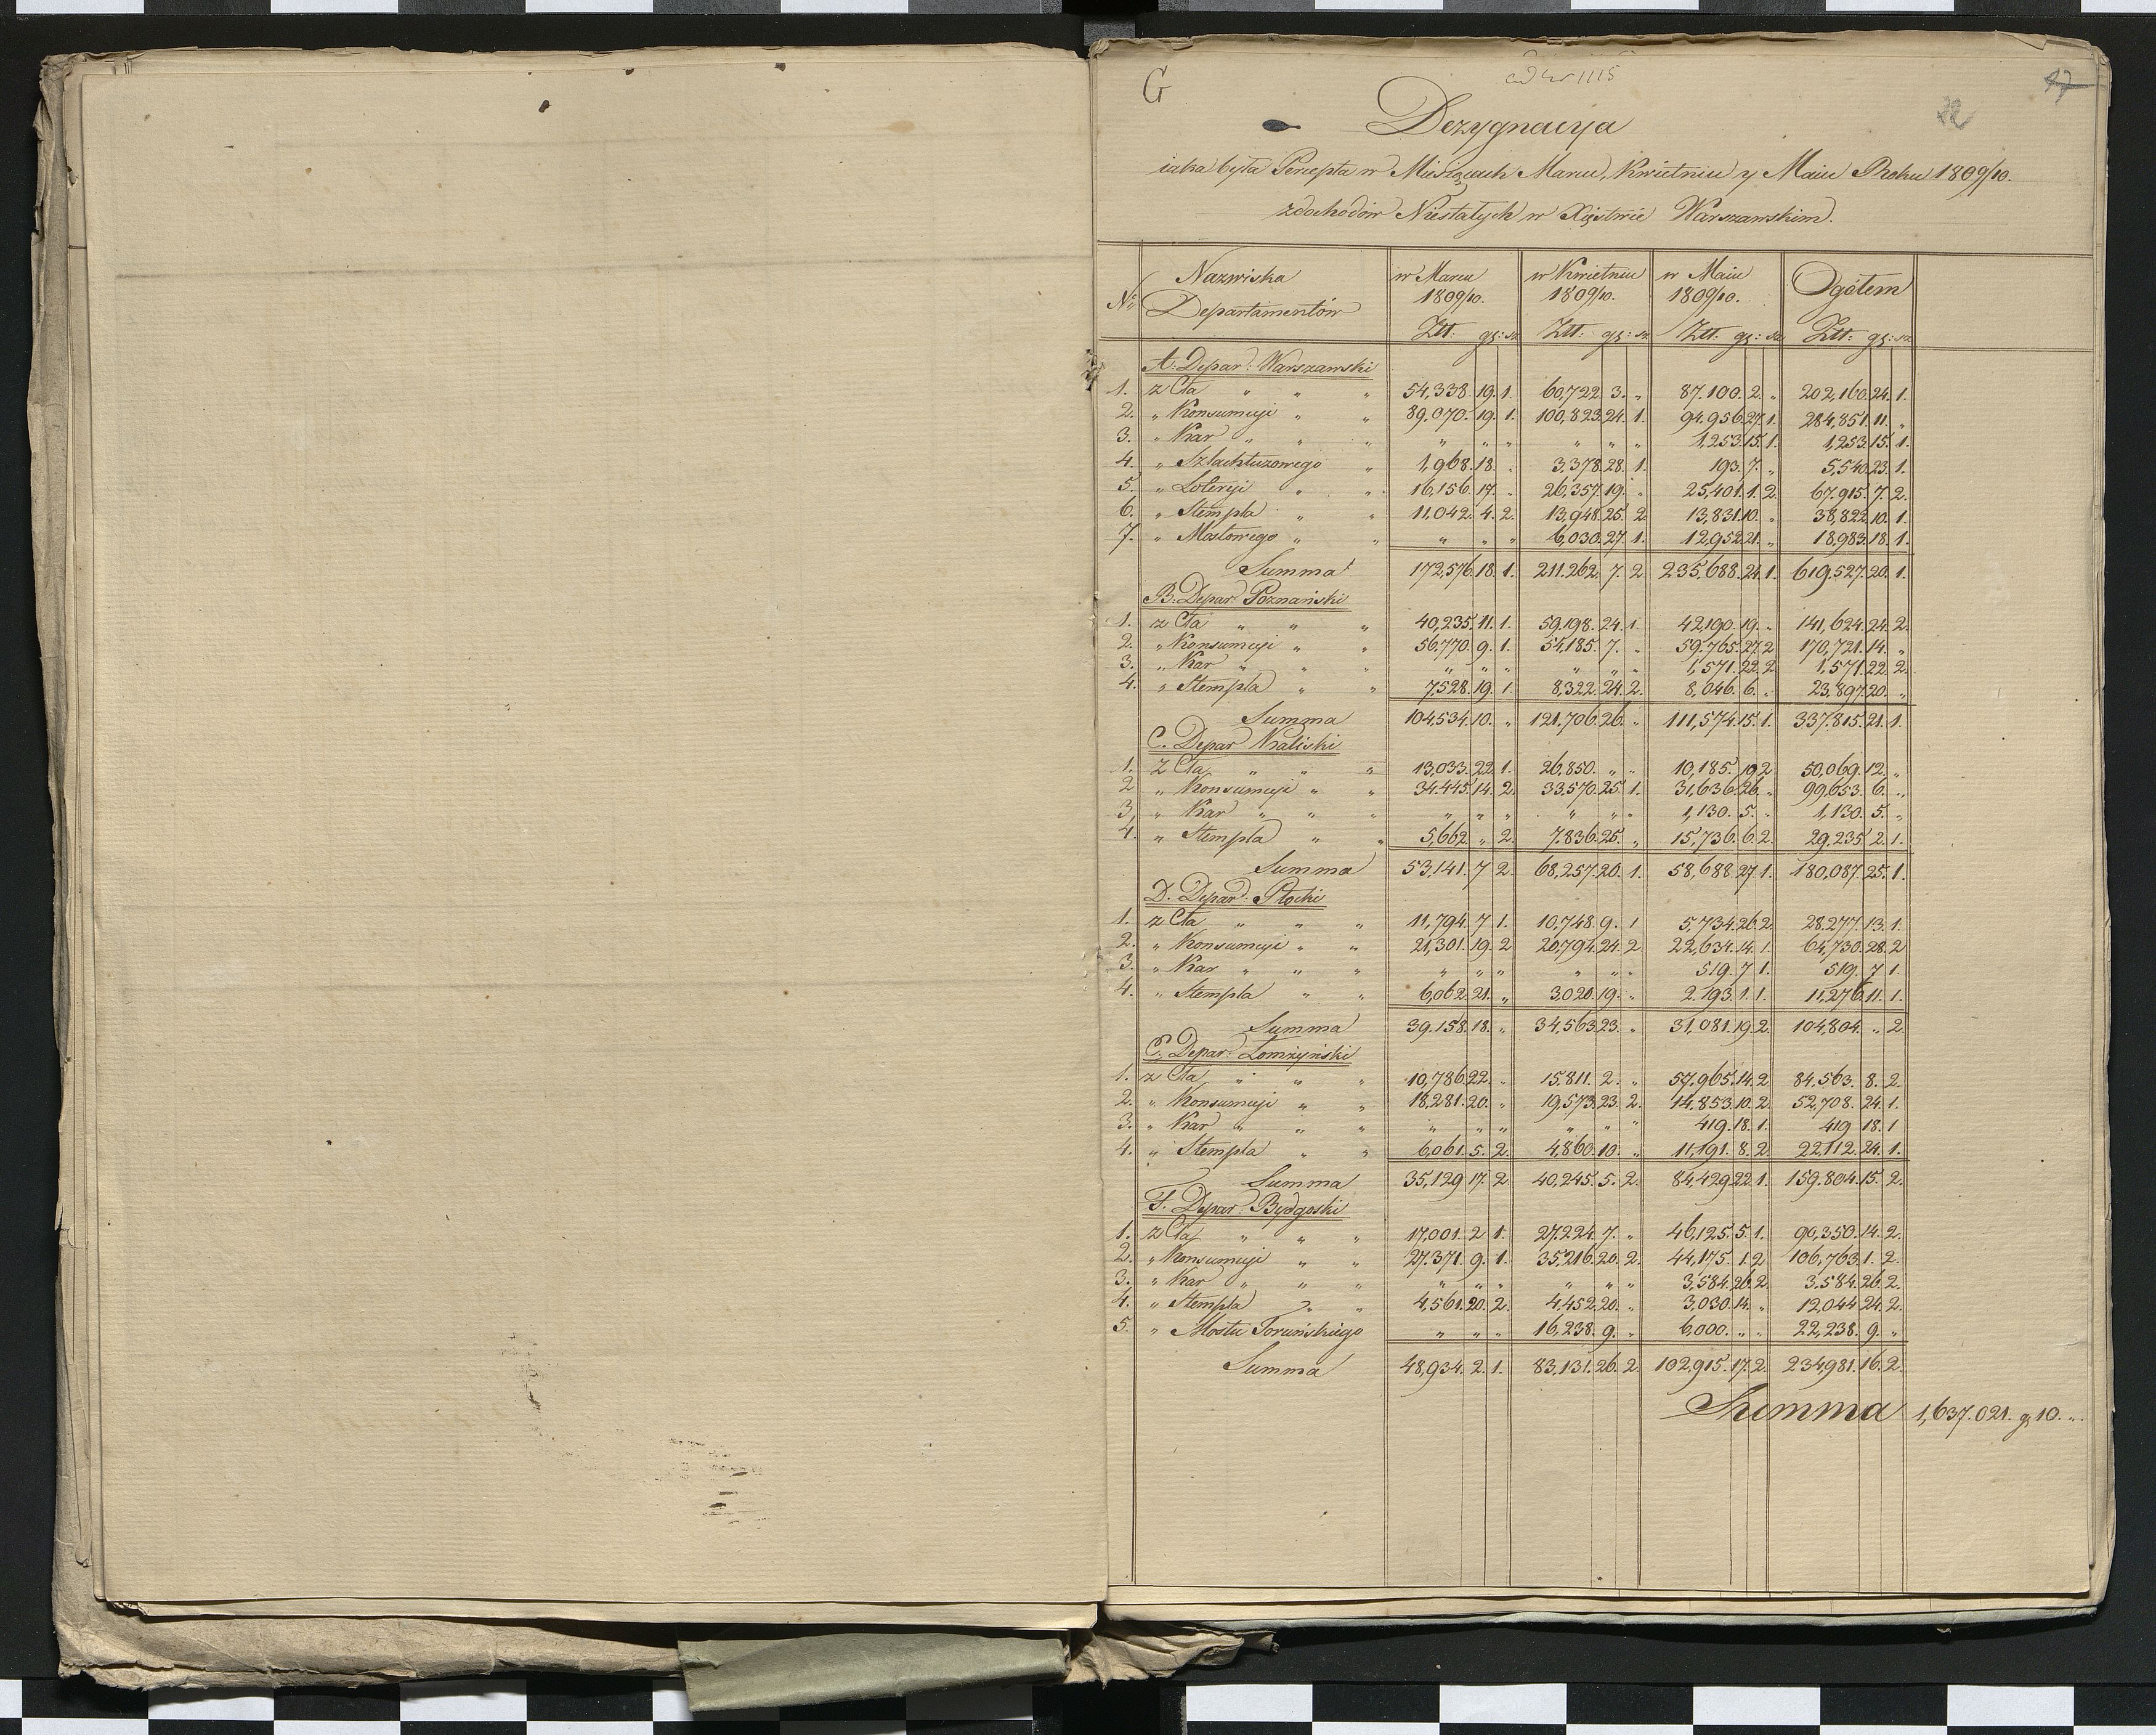 G
1115
17
22
Dezygnacya
iaka była Percepta w Miesiącach Marcu, Kwietniu y Maiu Roku 1809/10.
z dochodów Niestałych w Xięstwie Warszawskim.
Nro Nazwiska Departamentów w Marcu 1809/10. w Kwietniu 1809/10. w Maiu 1809/10. Ogółem
Złt: gr: sz Złt: gr: sz Złt: gr: sz Złt: gr: sz
A. Depar: Warszawski
1. z Cła " " " 54,338. 19. 1. 60,722. 3. " 87.100. 2. " 202,160. 24. 1.
2. " Konsumcyi " " 89,070. 19. 1. 100,823. 24. 1. 94.956. 27. 1. 284,851. 11. "
3. " Kar " " " " " " " " " 1,253. 15. 1. 1,253. 15. 1.
4. " Szlachtuzowego " 1,968. 18. " 3,378. 28. 1. 193. 7. " 5,540. 23. 1.
5. " Loteryi " " 16,156. 17. " 26,357. 19. " 25,401. 1. 2. 67.915. 7. 2.
6. " Stempla " " 11,042. 4. 2. 13,948. 25. 2. 13,831. 10. " 38,822. 10. 1.
7. " Mostowego " " " " " 6,030. 27. 1. 12,952. 21. " 18,983. 18. 1.
Summa 172,576. 18. 1. 211.262. 7. 2. 235,688. 24. 1. 619,527. 20. 1.
B. Depar: Poznański
1. z Cła " " " 40,235. 11. 1. 59.198. 24. 1. 42,190. 19. " 141,624. 24. 2.
2. " Konsumcyi " " 56,770. 9. 1. 54,185. 7. " 59.765. 27. 2. 170,721. 14. "
3. " Kar " " " " " " " " " 1,571. 22. 2. 1,571. 22. 2.
4. " Stempla " " 7,528. 19. 1. 8,322. 24. 2. 8,046. 6. " 23,897. 20. "
Summa 104,534. 10. " 121,706. 26. " 111,574. 15. 1. 337.815. 21. 1.
C. Depar Kaliski
1. z Cła " " " 13,033. 22. 1. 26,850. " " 10,185. 19. 2. 50,069. 12. "
2 " Konsumcyi " " 34.445. 14. 2. 33,570. 25. 1. 31,636. 26. " 99,653. 6. "
3. " Kar " " " " " " " " " 1,130. 5. " 1,130. 5. "
4. " Stempla " " 5,662. " 2. 7.836. 25. " 15,736. 6. 2. 29,235. 2. 1.
Summa 53,141. 7 2. 68,257. 20. 1. 58,688. 27. 1. 180,087. 25. 1.
D. Depar: Płocki
1. z Cła " " " 11,794. 7 1. 10,748. 9. 1 5,734. 26. 2. 28.277. 13. 1.
2. " Konsumcyi " " 21,301. 19. 2 20,794. 24. 2. 22,634. 14. 1. 64,730. 28. 2
3. " Kar " " " " " " " " " 519. 7 1. 519. 7 1.
4. " Stempla " " 6,062. 21. " 3,020. 19. " 2.193. 1. 1. 11,276. 11. 1.
Summa 39.158. 18. " 34,563. 23. " 31,081. 19. 2. 104,804. " 2.
E. Depar: Łomżyński
1. z Cła " " " 10,786. 22. " 15.811. 2. " 57.965. 14. 2 84.563. 8. 2.
2. " Konsumcyi " " 18,281. 20. " 19,573. 23. 2. 14,853. 10. 2. 52,708. 24. 1.
3. " Kar " " " " " " " " " 419. 18. 1. 419 18. 1
4. " Stempla " " 6,061. 5. 2. 4,860. 10. " 11,191. 8. 2. 22,112. 24. 1.
Summa 35,129 17. 2. 40,245. 5. 2. 84,429. 22. 1. 159.804. 15. 2.
F. Depar: Bydgoski
1. z Cła " " " 17,001. 2 1. 27.224. 7. " 46,125. 5. 1. 90,350. 14. 2.
2. " Konsumcyi " " 27.371. 9. 1. 35,216. 20. 2. 44,175. 1. 2 106,763. 1. 2.
3. " Kar " " " " " " " " " 3,584. 26. 2. 3.584. 26. 2.
4. " Stempla " " 4,561. 20. 2. 4,452. 20. " 3,030. 14. " 12,044 24. 2.
5. " Mostu Toruńskiego " " " 16,238. 9. " 6,000. " " 22,238. 9. "
Summa 48,934. 2. 1. 83,131. 26. 2. 102,915. 17. 2. 234,981. 16. 2.
Summa 1,637.021. gr 10. "